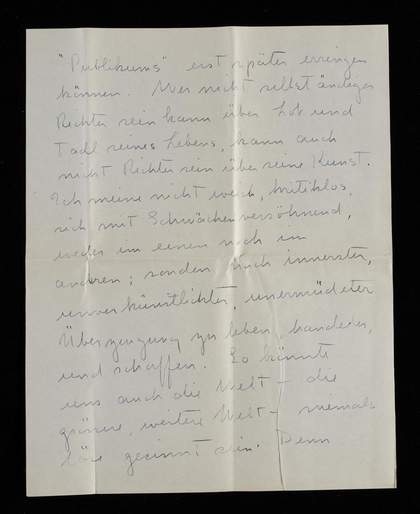 "Publikums" erst später erringen
können. Wer nicht selbständiger
Richter sein kann über Lob und
Tadl seines Lebens, kann auch
nicht Richter sein über seine Kunst.
Ich meine nicht weich, kritiklos,
sich mit Schwächen versöhnend,
weder im einen noch im
anderen; sondern nach innerster,
unverkünstelter, unermüdeter
Überzeugung zu leben, handeln,
und schaffen. So könnte
uns auch die Welt – die
grössere, weitere Welt – niemals
böse gesinnt sein. Denn